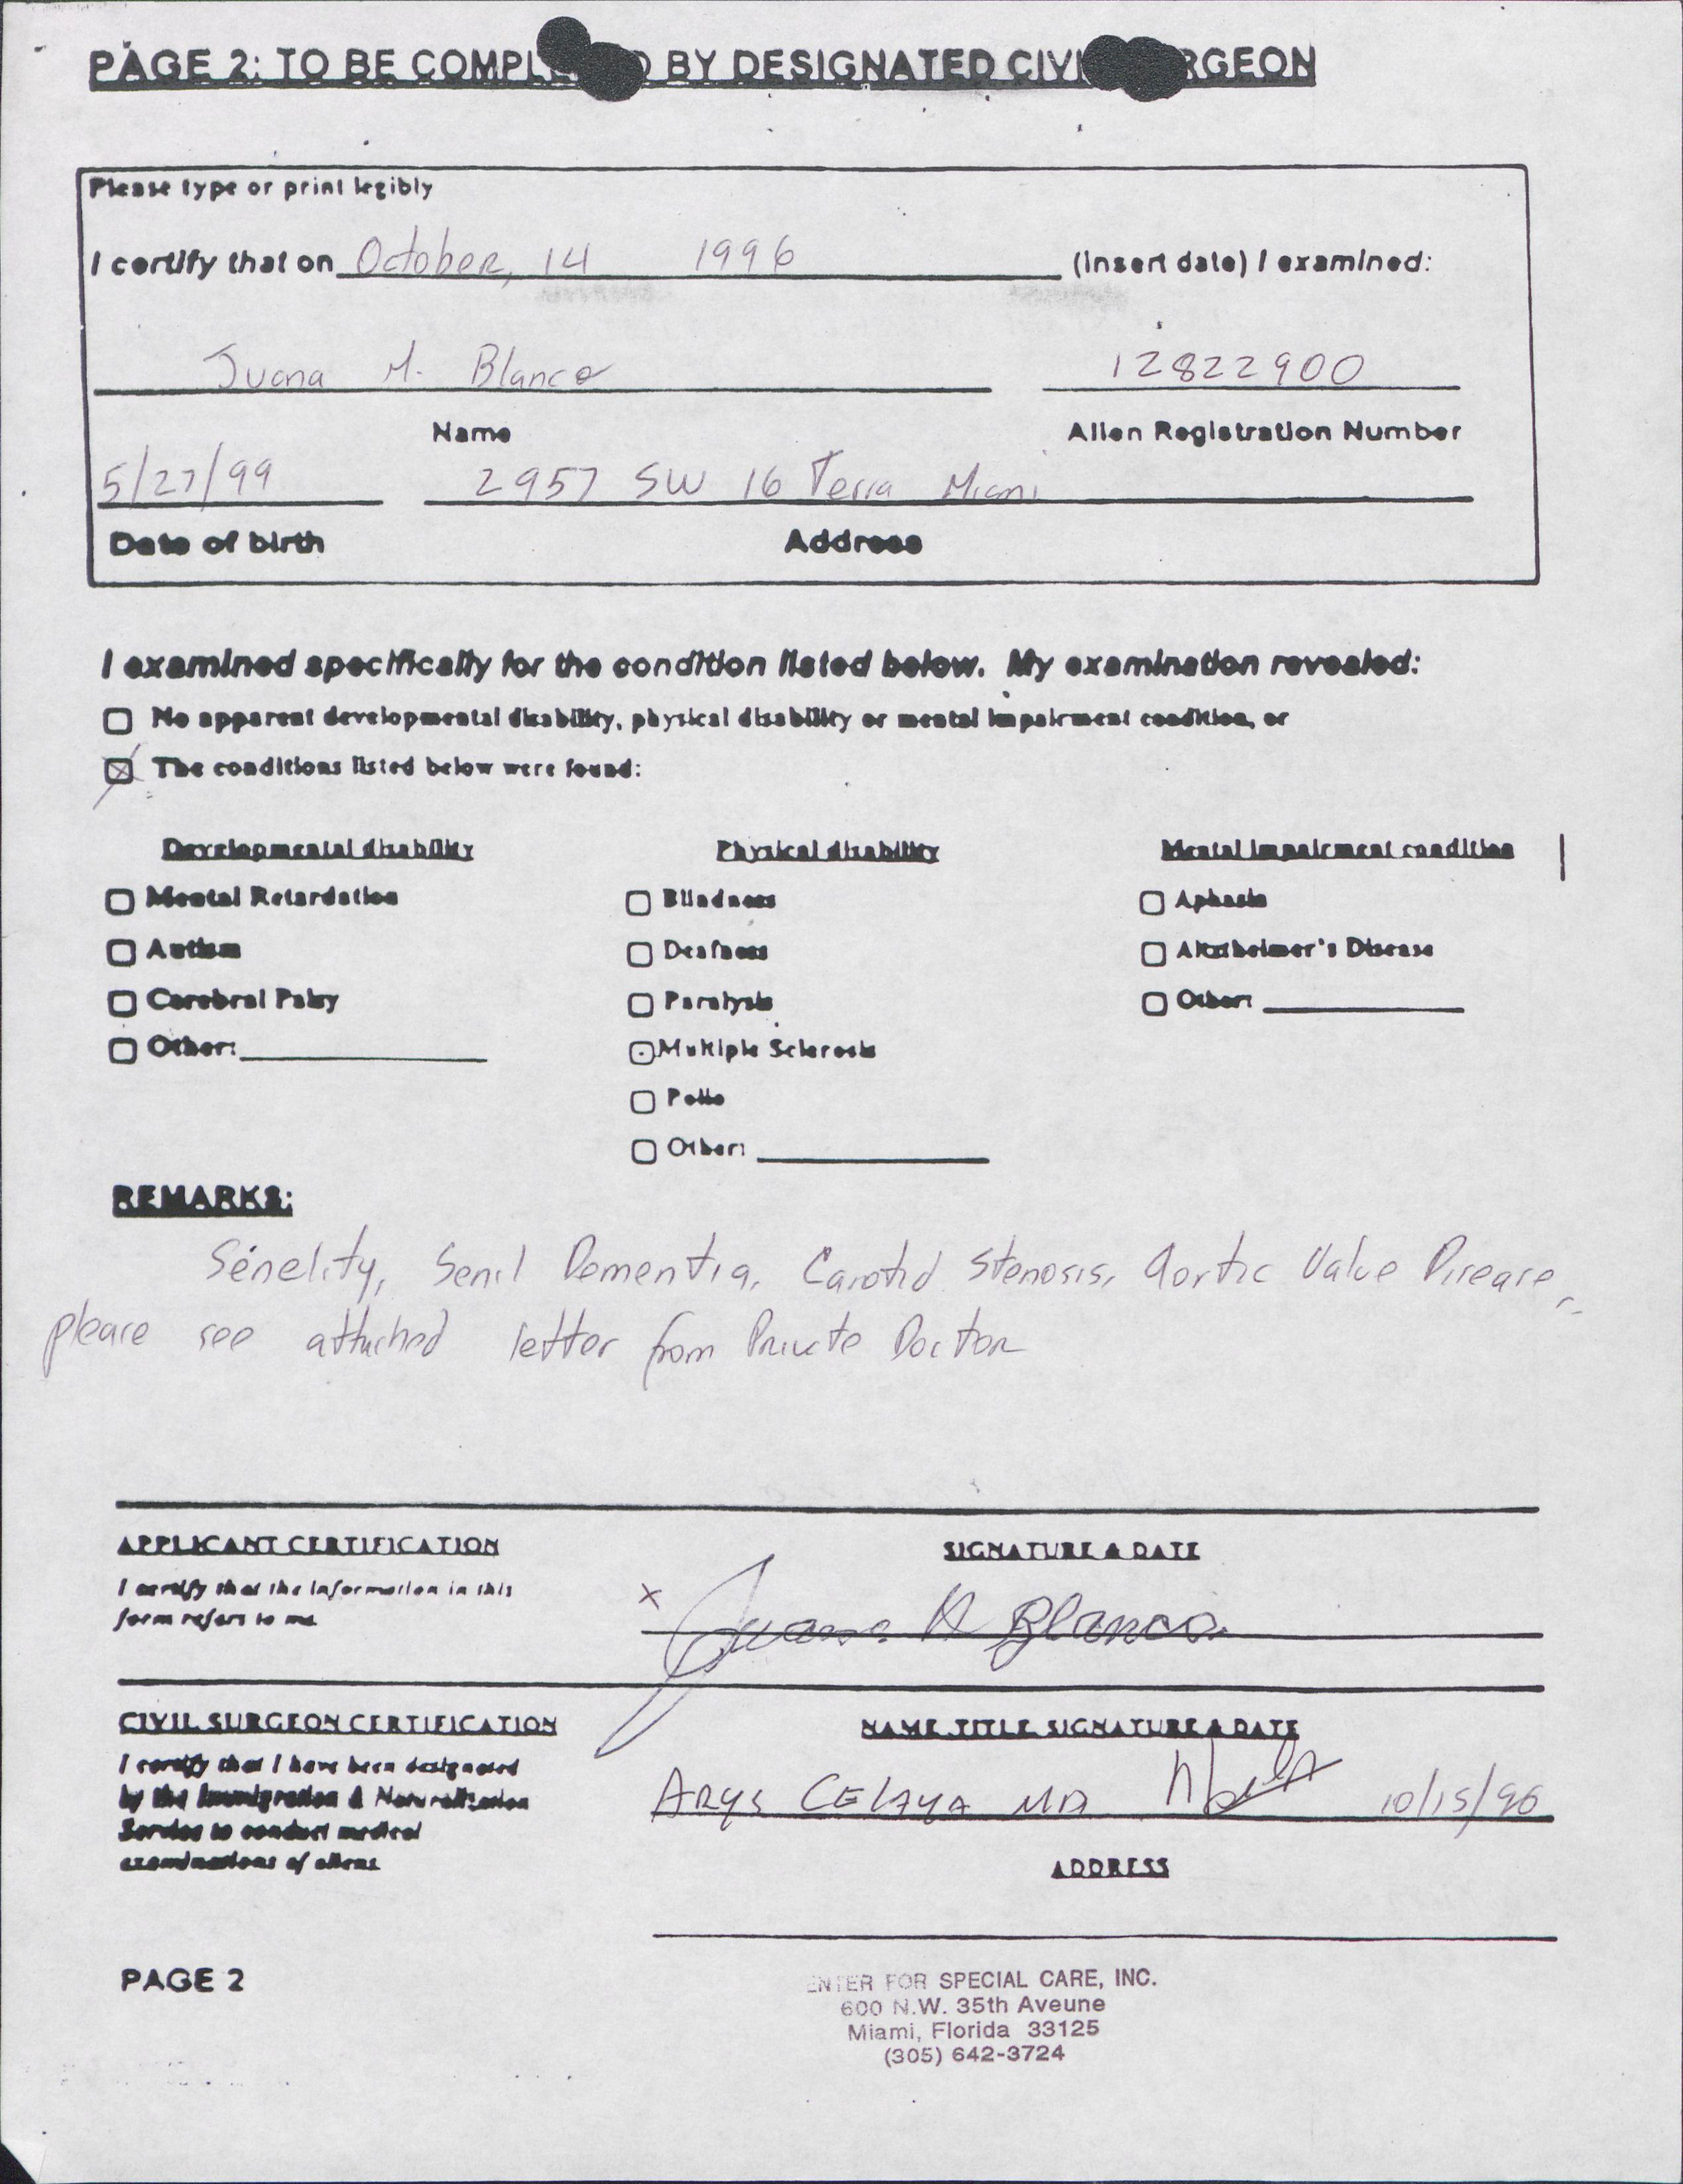 PAGE 2: TO BE COMPL D BY DESIGNATED CIVI RGEON
Please type or print legibly
I certify that on October, 14 1996 (insert date) I examined:
Juana M. Blanco 12822900
Name Alien Registration Number
5/27/99 2957 SW 16 Terra Miami
Date of birth Address
I examined specifically for the condition listed below. My examination revealed:
☐ No apparent developmental disability, physical disability or mental impairment condition, or
☒ The conditions listed below were found:
Developmental disability Physical disability Mental impairment condition
☐ Mental Retardation ☐ Blindness ☐ Aphasia
☐ Autism ☐ Deafness ☐ Alzheimer's Disease
☐ Cerebral Palsy ☐ Paralysis ☐ Other:
☐ Other: ☐ Multiple Sclerosis
☐ Polio
☐ Other:
REMARKS:
Senelity, Senil Dementia, Carotid Stenosis, Aortic Valve Disease,
please see attached letter from Private Doctor
APPLICANT CERTIFICATION SIGNATURE & DATE
I certify that the information in this
form refers to me
X Juana M Blanco
CIVIL SURGEON CERTIFICATION NAME, TITLE, SIGNATURE & DATE
I certify that I have been designated
by the Immigration & Naturalization
Service to conduct medical
examinations of aliens
ARYS CELAYA MD 10/15/96
ADDRESS
PAGE 2
ENTER FOR SPECIAL CARE, INC.
600 N.W. 35th Aveune
Miami, Florida 33125
(305) 642-3724